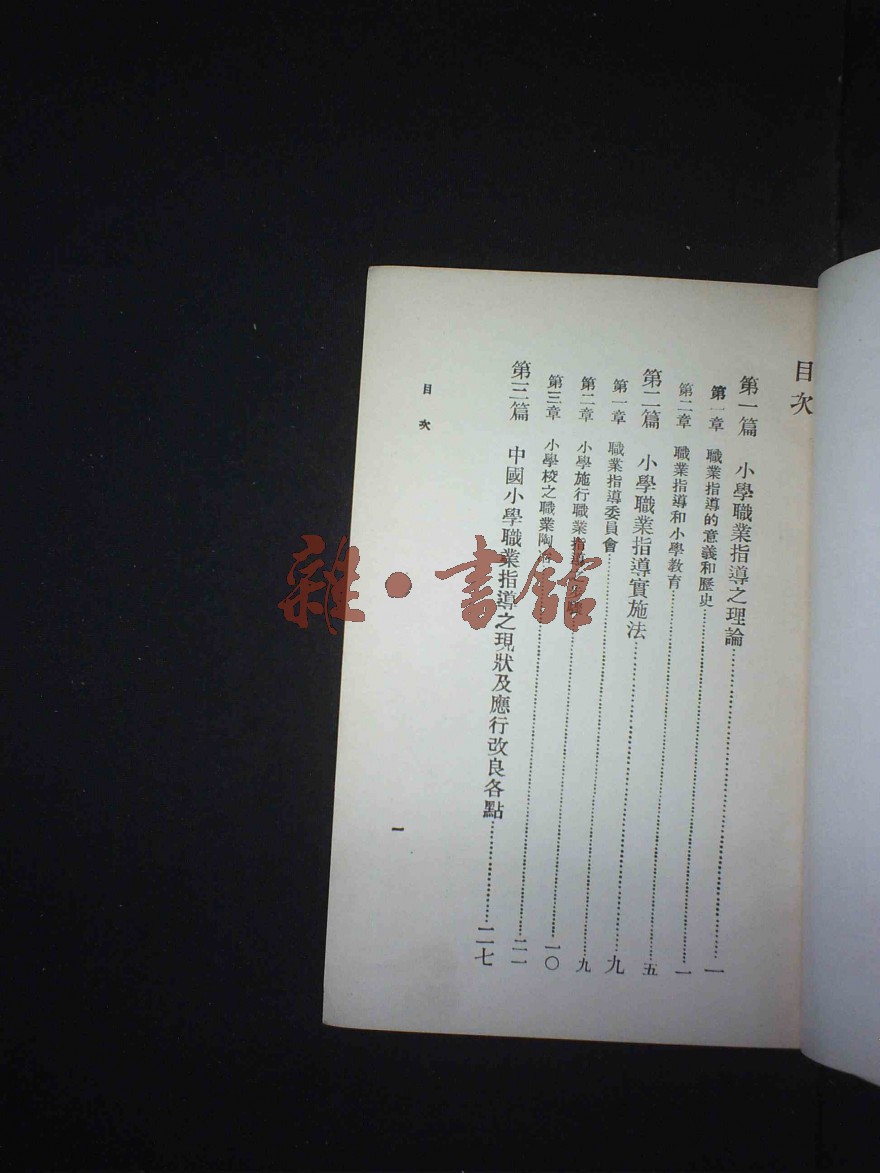 目次
第一篇 小學職業指導之理論……一
第一章 職業指導的意義和歷史……一
第二章 職業指導和小學教育……五
第二篇 小學職業指導實施法……九
第一章 職業指導委員會……九
第二章 小學施行職業指導……一〇
第三章 小學校之職業陶……二一
第三篇 中國小學職業指導之現狀及應行改良各點……二七
目次
一
雜·書館